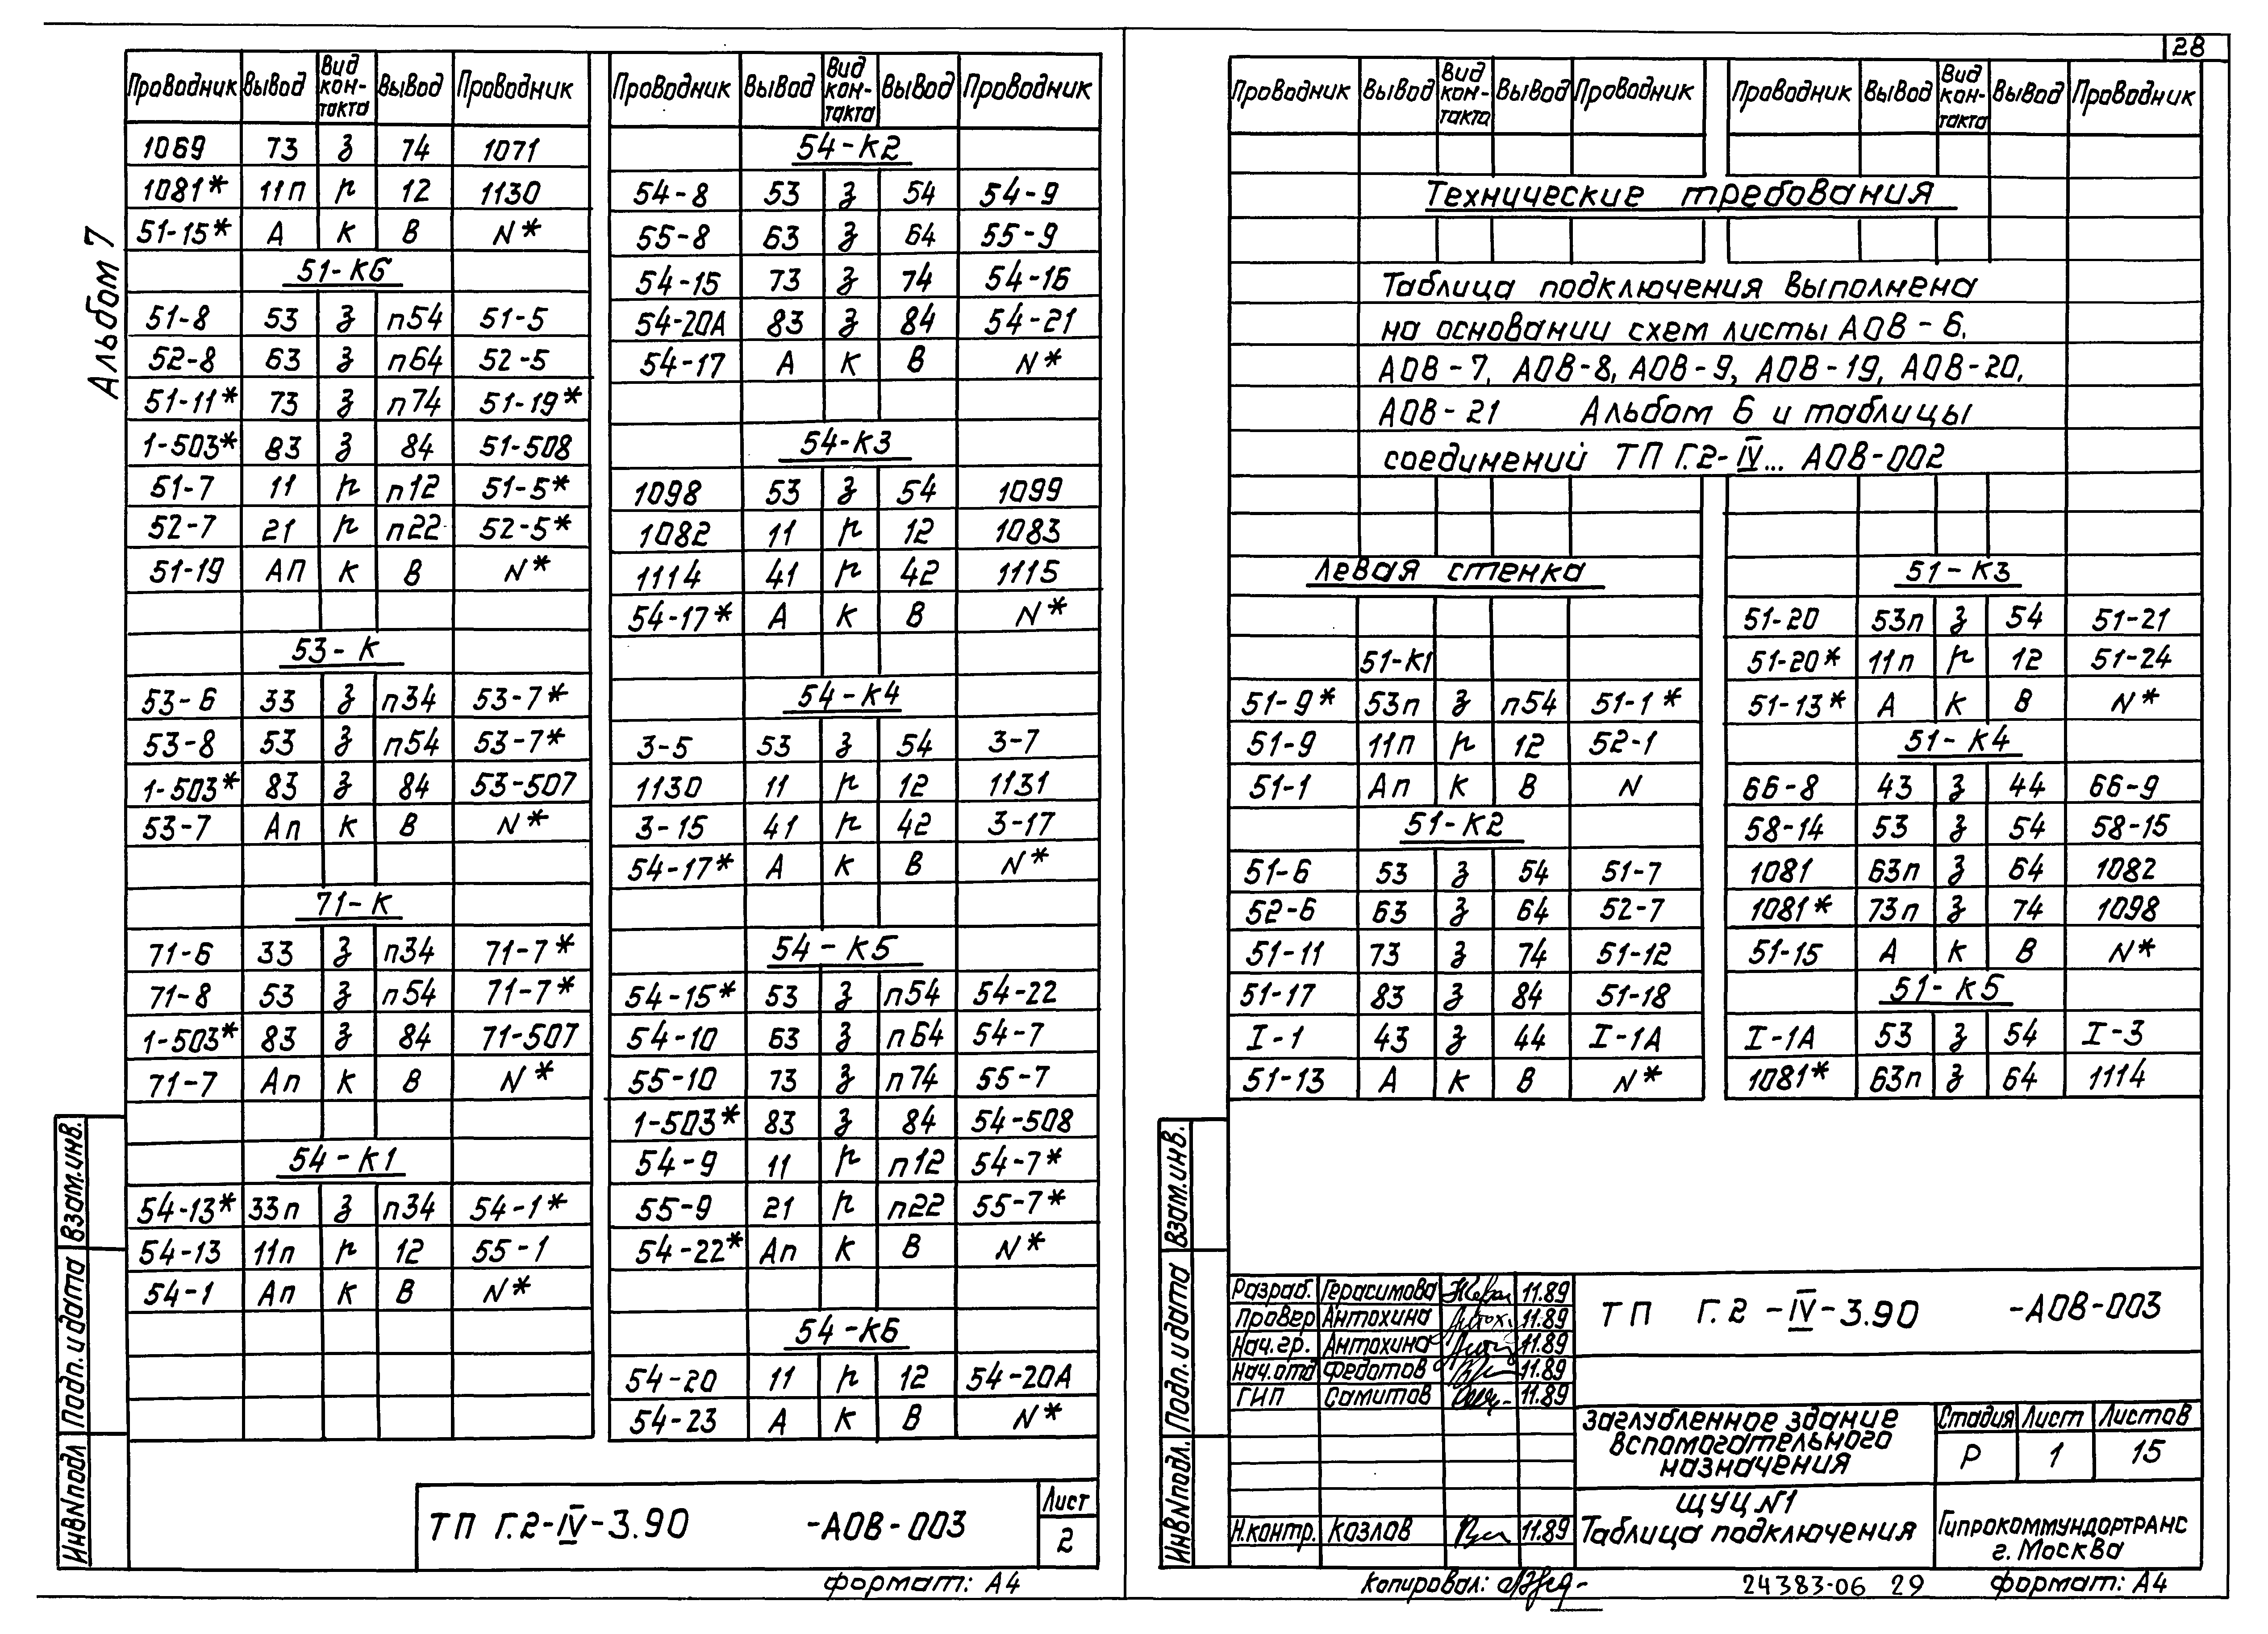 Альбом 7
Проводник Вывод Вид контакта Вывод Проводник
1069 73 з 74 1071
1081* 11п р 12 1130
51-15* А К В N*
51-К6
51-8 53 з п54 51-5
52-8 63 з п64 52-5
51-11* 73 з п74 51-19*
1-503* 83 з 84 51-508
51-7 11 р п12 51-5*
52-7 21 р п22 52-5*
51-19 Ап К В N*
53-К
53-6 33 з п34 53-7*
53-8 53 з п54 53-7*
1-503* 83 з 84 53-507
53-7 Ап К В N*
71-К
71-6 33 з п34 71-7*
71-8 53 з п54 71-7*
1-503* 83 з 84 71-507
71-7 Ап К В N*
54-К1
54-13* 33п з п34 54-1*
54-13 11п р 12 55-1
54-1 Ап К В N*
Проводник Вывод Вид контакта Вывод Проводник
54-К2
54-8 53 з 54 54-9
55-8 63 з 64 55-9
54-15 73 з 74 54-16
54-20А 83 з 84 54-21
54-17 А К В N*
54-К3
1098 53 з 54 1099
1082 11 р 12 1083
1114 41 р 42 1115
54-17* А К В N*
54-К4
3-5 53 з 54 3-7
1130 11 р 12 1131
3-15 41 р 42 3-17
54-17* А К В N*
54-К5
54-15* 53 з п54 54-22
54-10 63 з п64 54-7
55-10 73 з п74 55-7
1-503* 83 з 84 54-508
54-9 11 р п12 54-7*
55-9 21 р п22 55-7*
54-22* Ап К В N*
54-К6
54-20 11 р 12 54-20А
54-23 А К В N*
Взам.инв.
Подп. и дата
Инв№подл
ТП Г.2-IV-3.90 -АОВ-003
Лист
2
формат: А4
28
Проводник Вывод Вид контакта Вывод Проводник
Проводник Вывод Вид контакта Вывод Проводник
Технические требования
Таблица подключения выполнена
на основании схем листы АОВ-6,
АОВ-7, АОВ-8, АОВ-9, АОВ-19, АОВ-20,
АОВ-21 Альбом 6 и таблицы
соединений ТП Г.2-IV... АОВ-002
Левая стенка
51-К1
51-9* 53п з п54 51-1*
51-9 11п р 12 52-1
51-1 Ап К В N
51-К2
51-6 53 з 54 51-7
52-6 63 з 64 52-7
51-11 73 з 74 51-12
51-17 83 з 84 51-18
I-1 43 з 44 I-1А
51-13 А К В N*
51-К3
51-20 53п з 54 51-21
51-20* 11п р 12 51-24
51-13* А К В N*
51-К4
66-8 43 з 44 66-9
58-14 53 з 54 58-15
1081 63п з 64 1082
1081* 73п з 74 1098
51-15 А К В N*
51-К5
I-1А 53 з 54 I-3
1081* 63п з 64 1114
Взам.инв.
Подп. и дата
Инв№подл.
Разраб. Герасимова 11.89
Провер Антохина 11.89
Нач.гр. Антохина 11.89
Нач.отд Федотов 11.89
ГИП Самитов 11.89
Н.контр. Козлов 11.89
ТП Г.2-IV-3.90 -АОВ-003
Заглубленное здание
вспомогательного
назначения
Стадия Лист Листов
Р 1 15
ЩУЦ №1
Таблица подключения
Гипрокоммундортранс
г. Москва
Копировал:
24383-06 29
формат: А4